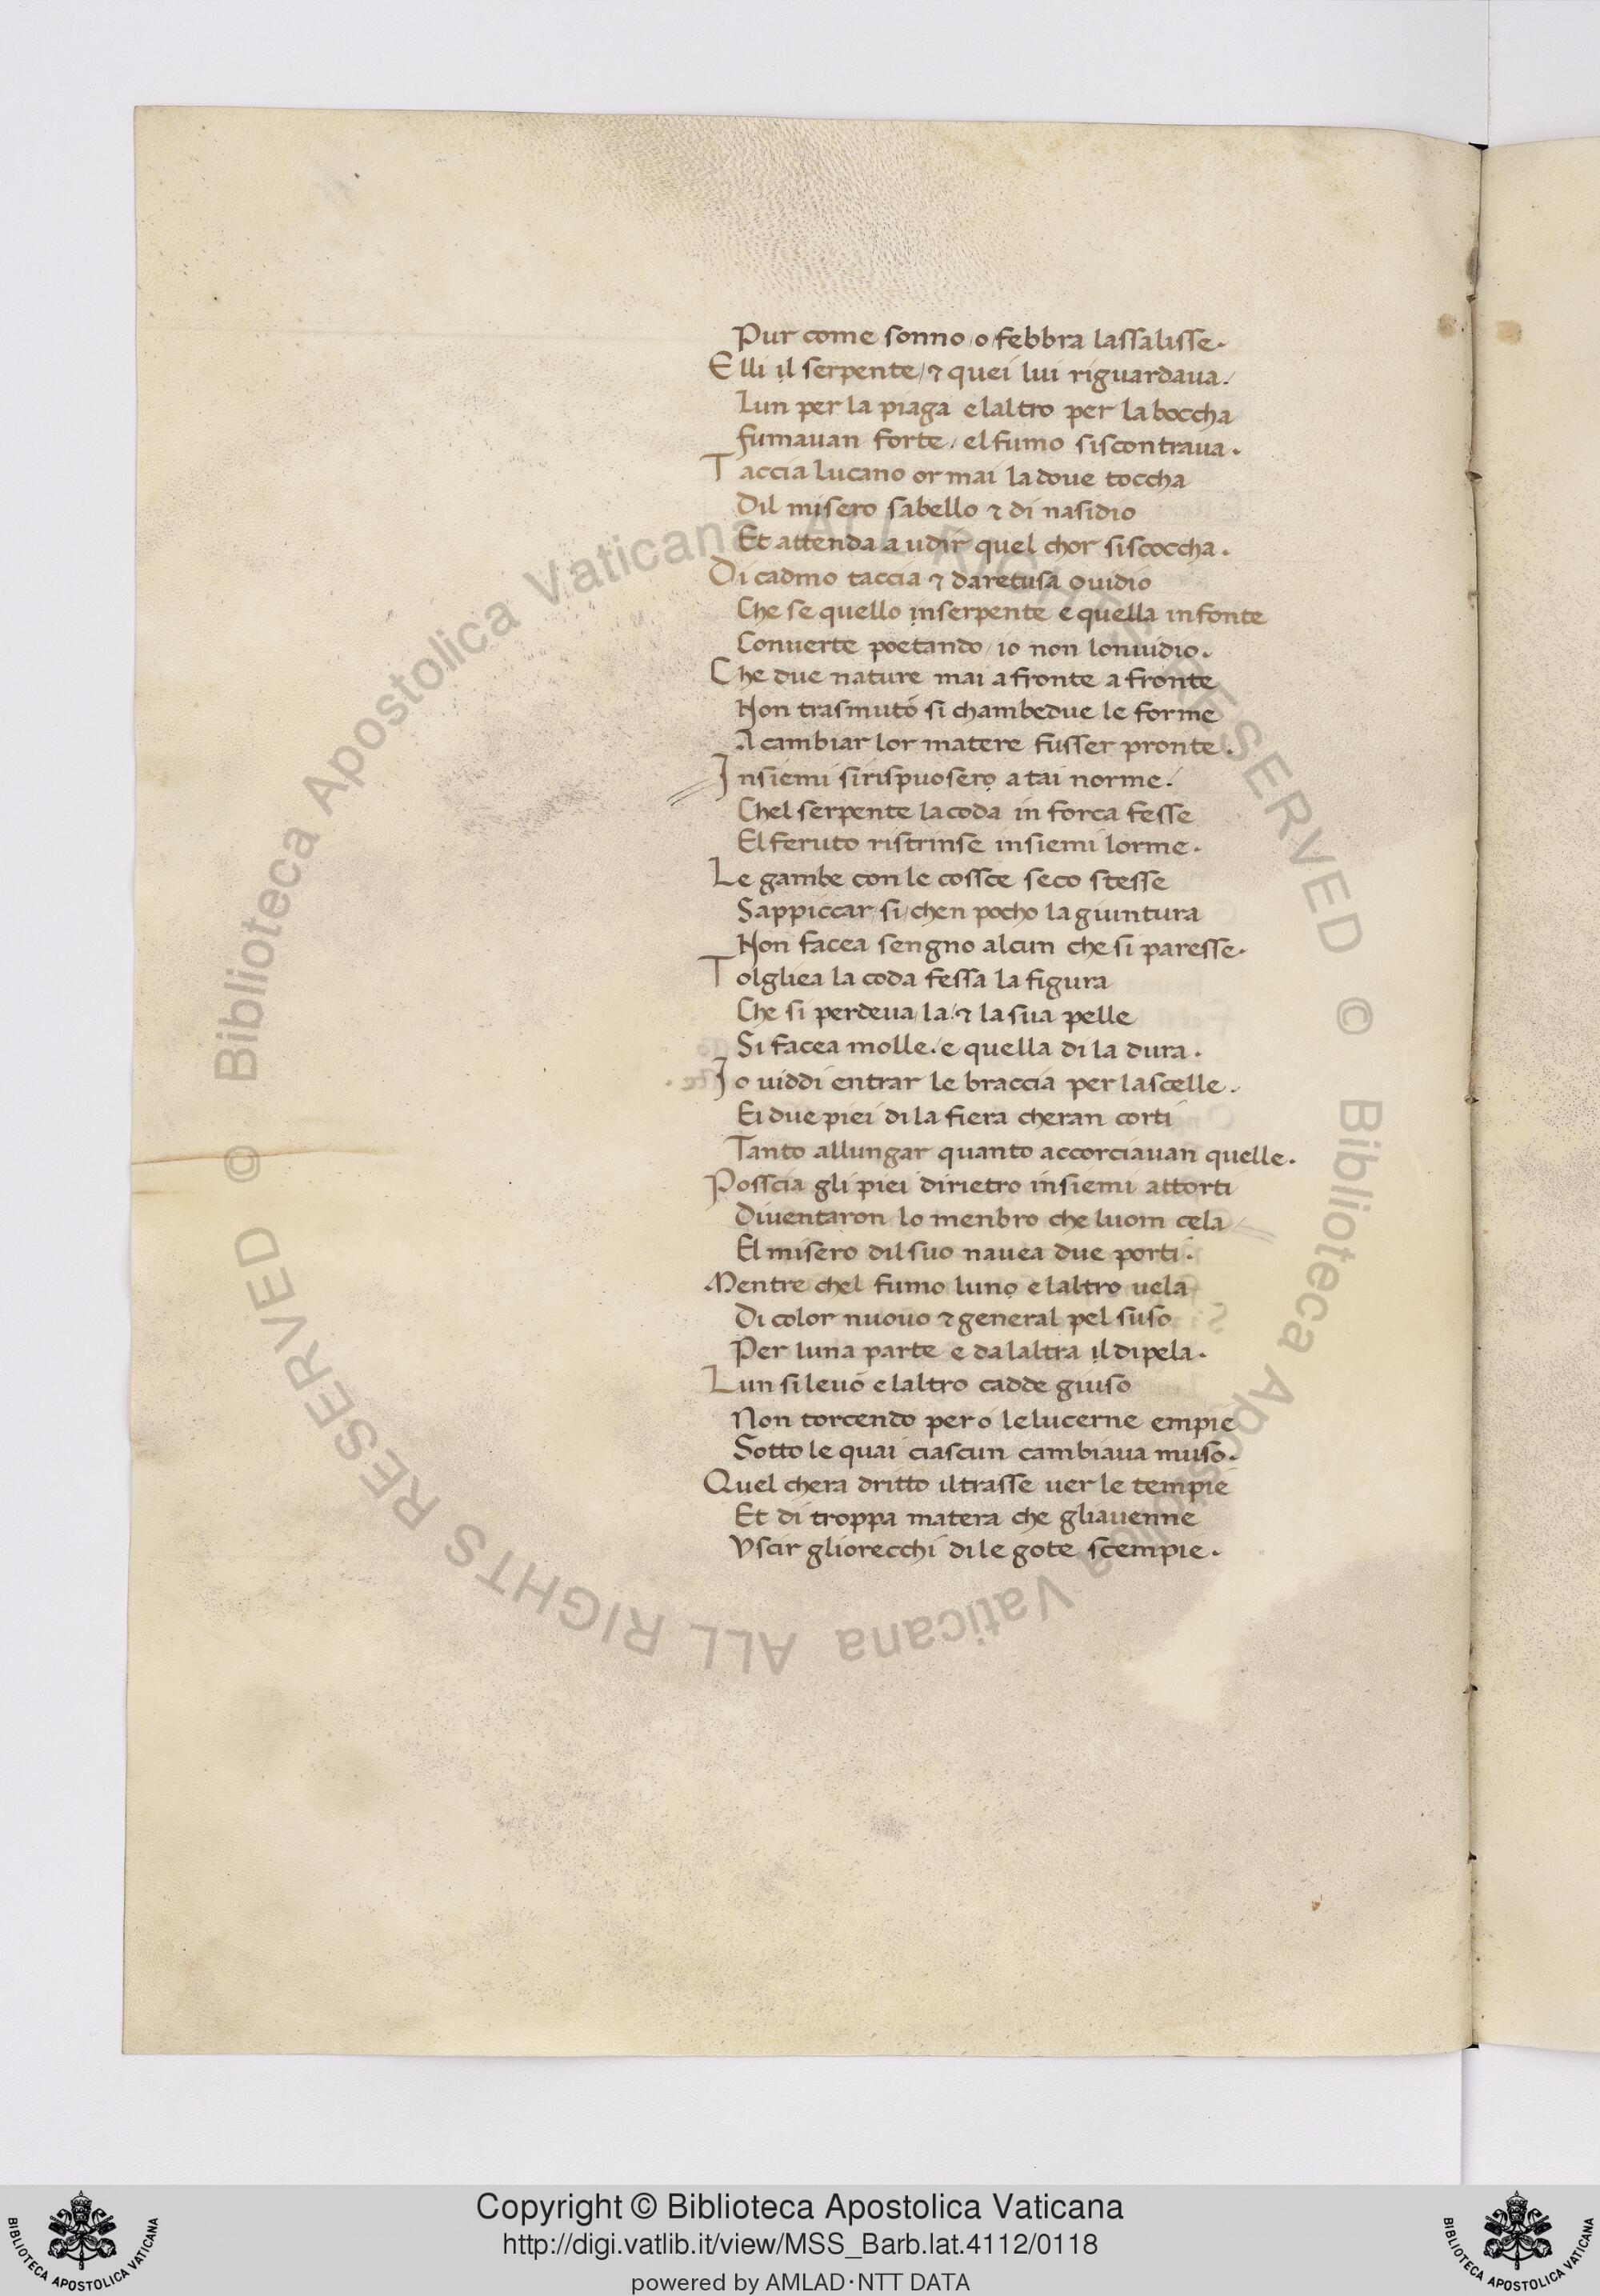 Pur come sonno/o/febbra lassalisse.
Elli il serpente/⁊ quei lui riguardaua./
Lun per la piaga elaltro per la boccha
fumauan forte/elfumo siscontraua.
Taccia lucano or mai ladoue toccha
Dil misero sabello ⁊ di nasidio
Et attenda a udir quel chor siscoccha.
Di cadmo taccia ⁊ daretusa ouidio
Che se quello inserpente e quella infonte
Conuerte poetando/io non lonuidio.
Che due nature mai afronte a fronte
Non trasmutó si chambedue le forme
A cambiar lor matere fusser pronte.
Insiemi sirispuosero a tai norme./
Chel serpente lacoda in forca fesse
El feruto ristrinse insiemi lorme.
Le gambe con le cossce seco stesse
Sappiccar/si/chen pocho lagiuntura
Non facea sengno alcun che si paresse.
Tolgliea la coda fessa la figura
Che si perdeua/la/⁊ lasua pelle
Si facea molle./e quella di la dura.
Io uiddi entrar le braccia per lascelle.
Ei due piei di la fiera cheran corti
Tanto allungar quanto accorciauan quelle.
Posscia gli piei dirietro insiemi attorti
Diuentaron lo menbro che luom cela
El misero dil suo nauea due porti.
Mentre chel fumo luno elaltro uela
Di color nuouo ⁊ general pel suso
Per luna parte e dalaltra il dipela.
Lun si leuó elaltro cadde giuso
Non torcendo peró lelucerne empie
Sotto le quai ciascun cambiaua muso.
Quel chera dritto iltrasse uer le tempie
Et di troppa matera che gliauenne
Vscir gliorecchi dile gote scempie.
© Biblioteca Apostolica Vaticana ALL RIGHTS RESERVED © Biblioteca Apostolica Vaticana ALL RIGHTS RESERVED
Copyright © Biblioteca Apostolica Vaticana
http://digi.vatlib.it/view/MSS_Barb.lat.4112/0118
powered by AMLAD·NTT DATA
BIBLIOTECA APOSTOLICA VATICANA
BIBLIOTECA APOSTOLICA VATICANA